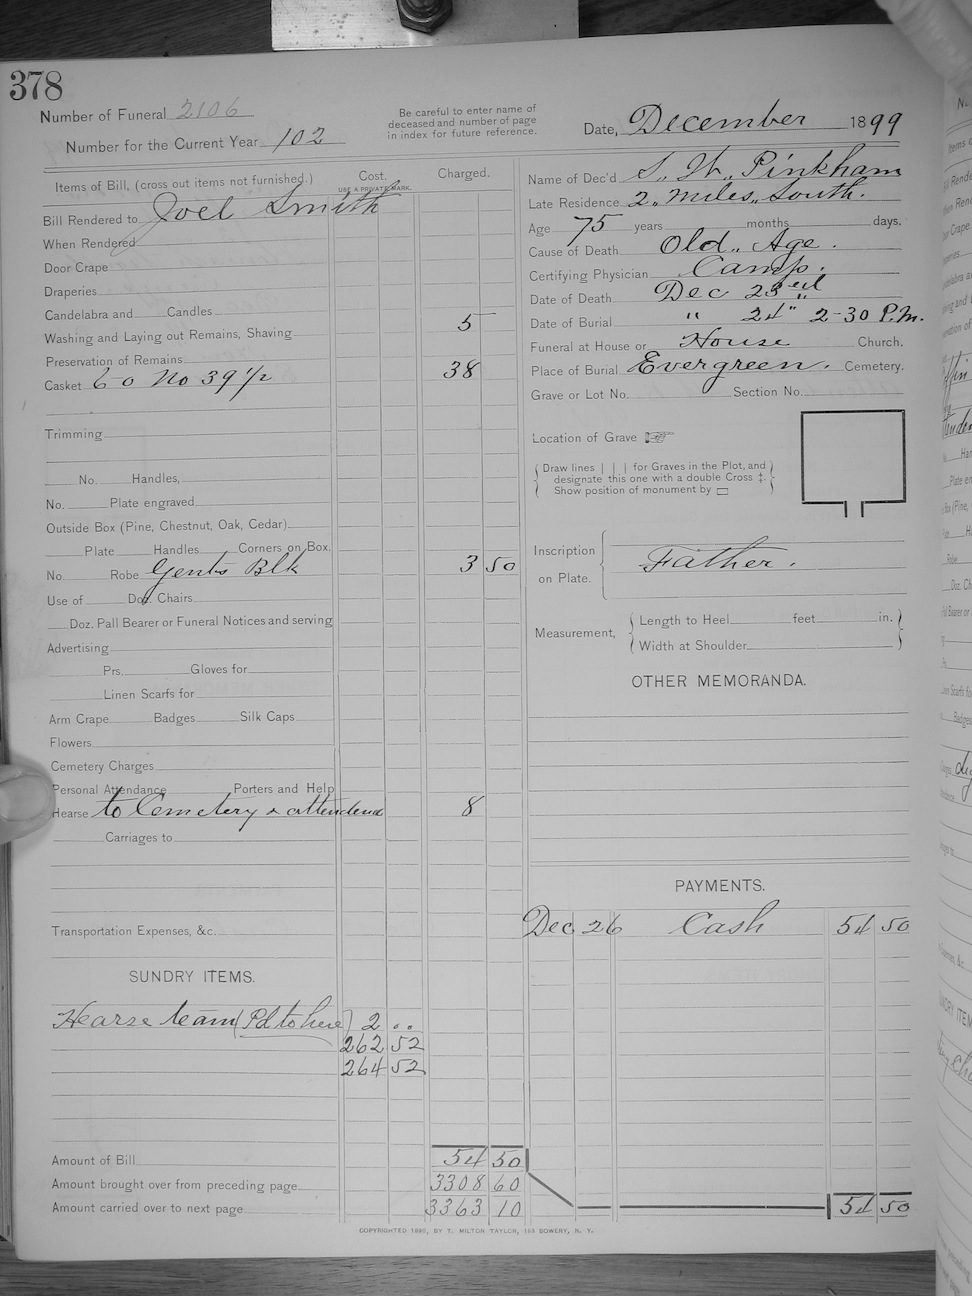 378
Number of Funeral 2106
Number for the Current Year 102
Be careful to enter name of
deceased and number of page
in index for future reference.
Date, December 1899
Items of Bill, (cross out items not furnished.) Cost. Charged.
USE A PRIVATE MARK.
Bill Rendered to Joel Smith
When Rendered
Door Crape
Draperies
Candelabra and Candles
Washing and Laying out Remains, Shaving 5
Preservation of Remains
Casket 6-0 No 39 1/2 38
Trimming
No. Handles,
No. Plate engraved
Outside Box (Pine, Chestnut, Oak, Cedar)
Plate Handles Corners on Box.
No. Robe Gents Blk 3 50
Use of Doz. Chairs
Doz. Pall Bearer or Funeral Notices and serving
Advertising
Prs. Gloves for
Linen Scarfs for
Arm Crape Badges Silk Caps
Flowers
Cemetery Charges
Personal Attendance Porters and Help
Hearse to Cemetery & attendence 8
Carriages to
Transportation Expenses, &c.
SUNDRY ITEMS.
Hearse team (Pd to here) 2 ..
262 52
264 52
Amount of Bill 54 50
Amount brought over from preceding page 3308 60
Amount carried over to next page 3363 10
Name of Dec'd S. W. Pinkham
Late Residence 2 miles South.
Age 75 years months days.
Cause of Death Old Age.
Certifying Physician Camp.
Date of Death Dec 23rd
Date of Burial " 24" 2-30 P.M.
Funeral at House or House Church.
Place of Burial Evergreen. Cemetery.
Grave or Lot No. Section No.
Location of Grave
Draw lines | | | for Graves in the Plot, and
designate this one with a double Cross ‡.
Show position of monument by ▭
Inscription
on Plate.
Father.
Measurement,
Length to Heel feet in.
Width at Shoulder
OTHER MEMORANDA.
PAYMENTS.
Dec 26 Cash 54 50
54 50
COPYRIGHTED 1890, BY T. MILTON TAYLOR, 163 BOWERY, N. Y.